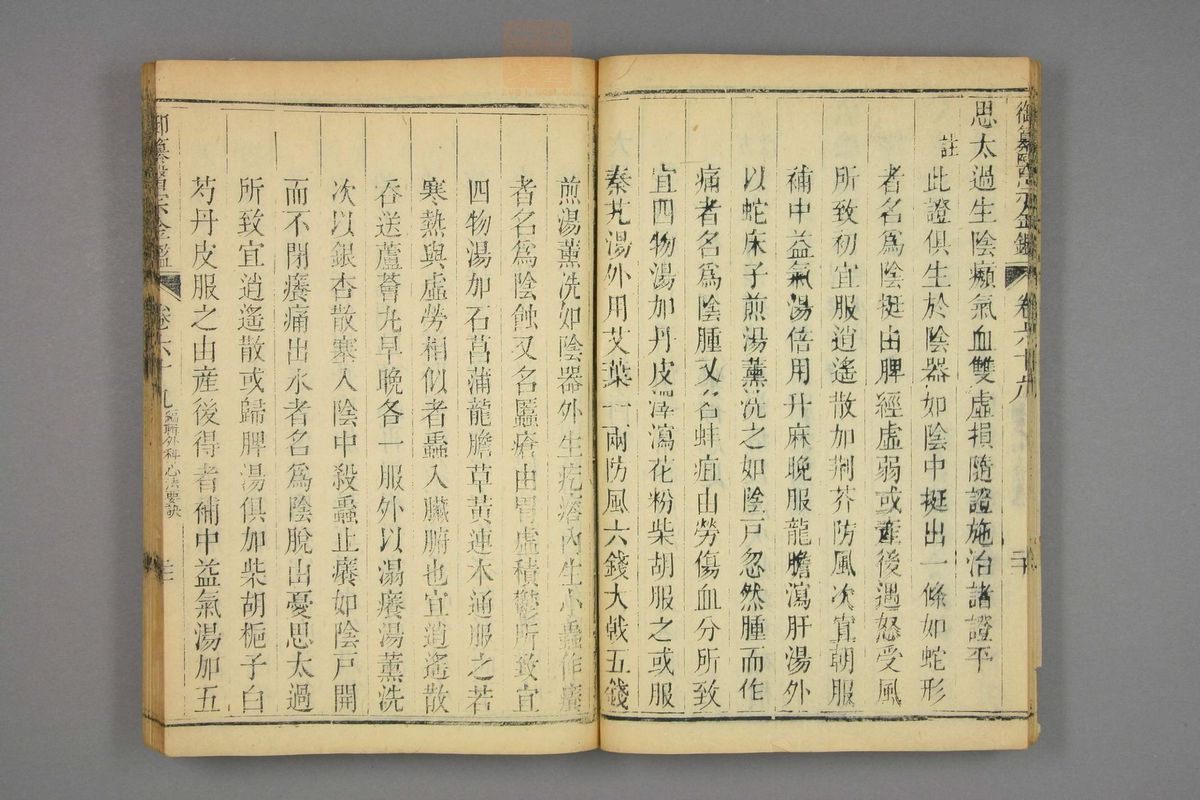 御纂醫宗金鑑 卷六十九 二十
思太過生陰㿗氣血雙虛損隨證施治諸證平
註
此證俱生於陰器如陰中挺出一條如蛇形
者名爲陰挺由脾經虛弱或產後遇怒受風
所致初宜服逍遙散加荆芥防風次宜朝服
補中益氣湯倍用升麻晚服龍膽瀉肝湯外
以蛇床子煎湯薰洗之如陰戸忽然腫而作
痛者名爲陰腫又名蚌疽由勞傷血分所致
宜四物湯加丹皮澤瀉花粉柴胡服之或服
秦艽湯外用艾葉一兩防風六錢大戟五錢
煎湯薰洗如陰器外生疙瘩內生小蟲作癢
者名爲陰蝕又名䘌瘡由胃虛積鬱所致宜
四物湯加石菖蒲龍膽草黃連木通服之若
寒熱與虛勞相似者蟲入臟腑也宜逍遙散
吞送蘆薈丸早晚各一服外以溻癢湯薰洗
次以銀杏散塞入陰中殺蟲止癢如陰戸開
而不閉癢痛出水者名爲陰脫由憂思太過
所致宜逍遙散或歸脾湯俱加柴胡梔子白
芍丹皮服之由産後得者補中益氣湯加五
御纂醫宗金鑑 卷六十九 編輯外科心法要訣